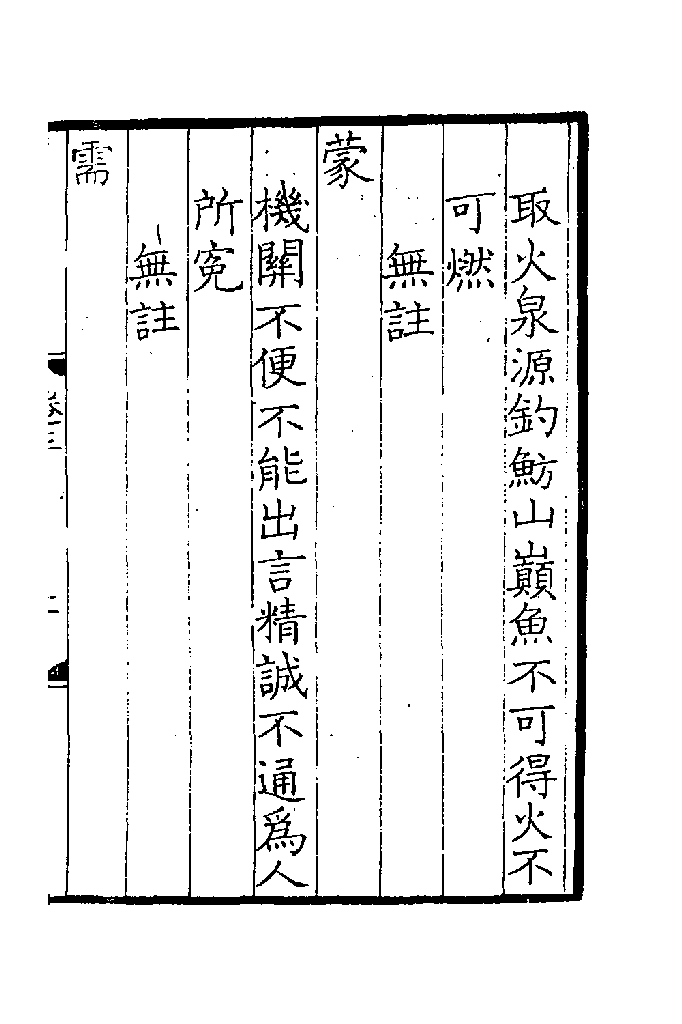 取火泉源釣魴山巔魚不可得火不
可燃
無註
蒙
機關不便不能出言精誠不通爲人
所寃
無註
需
卷三